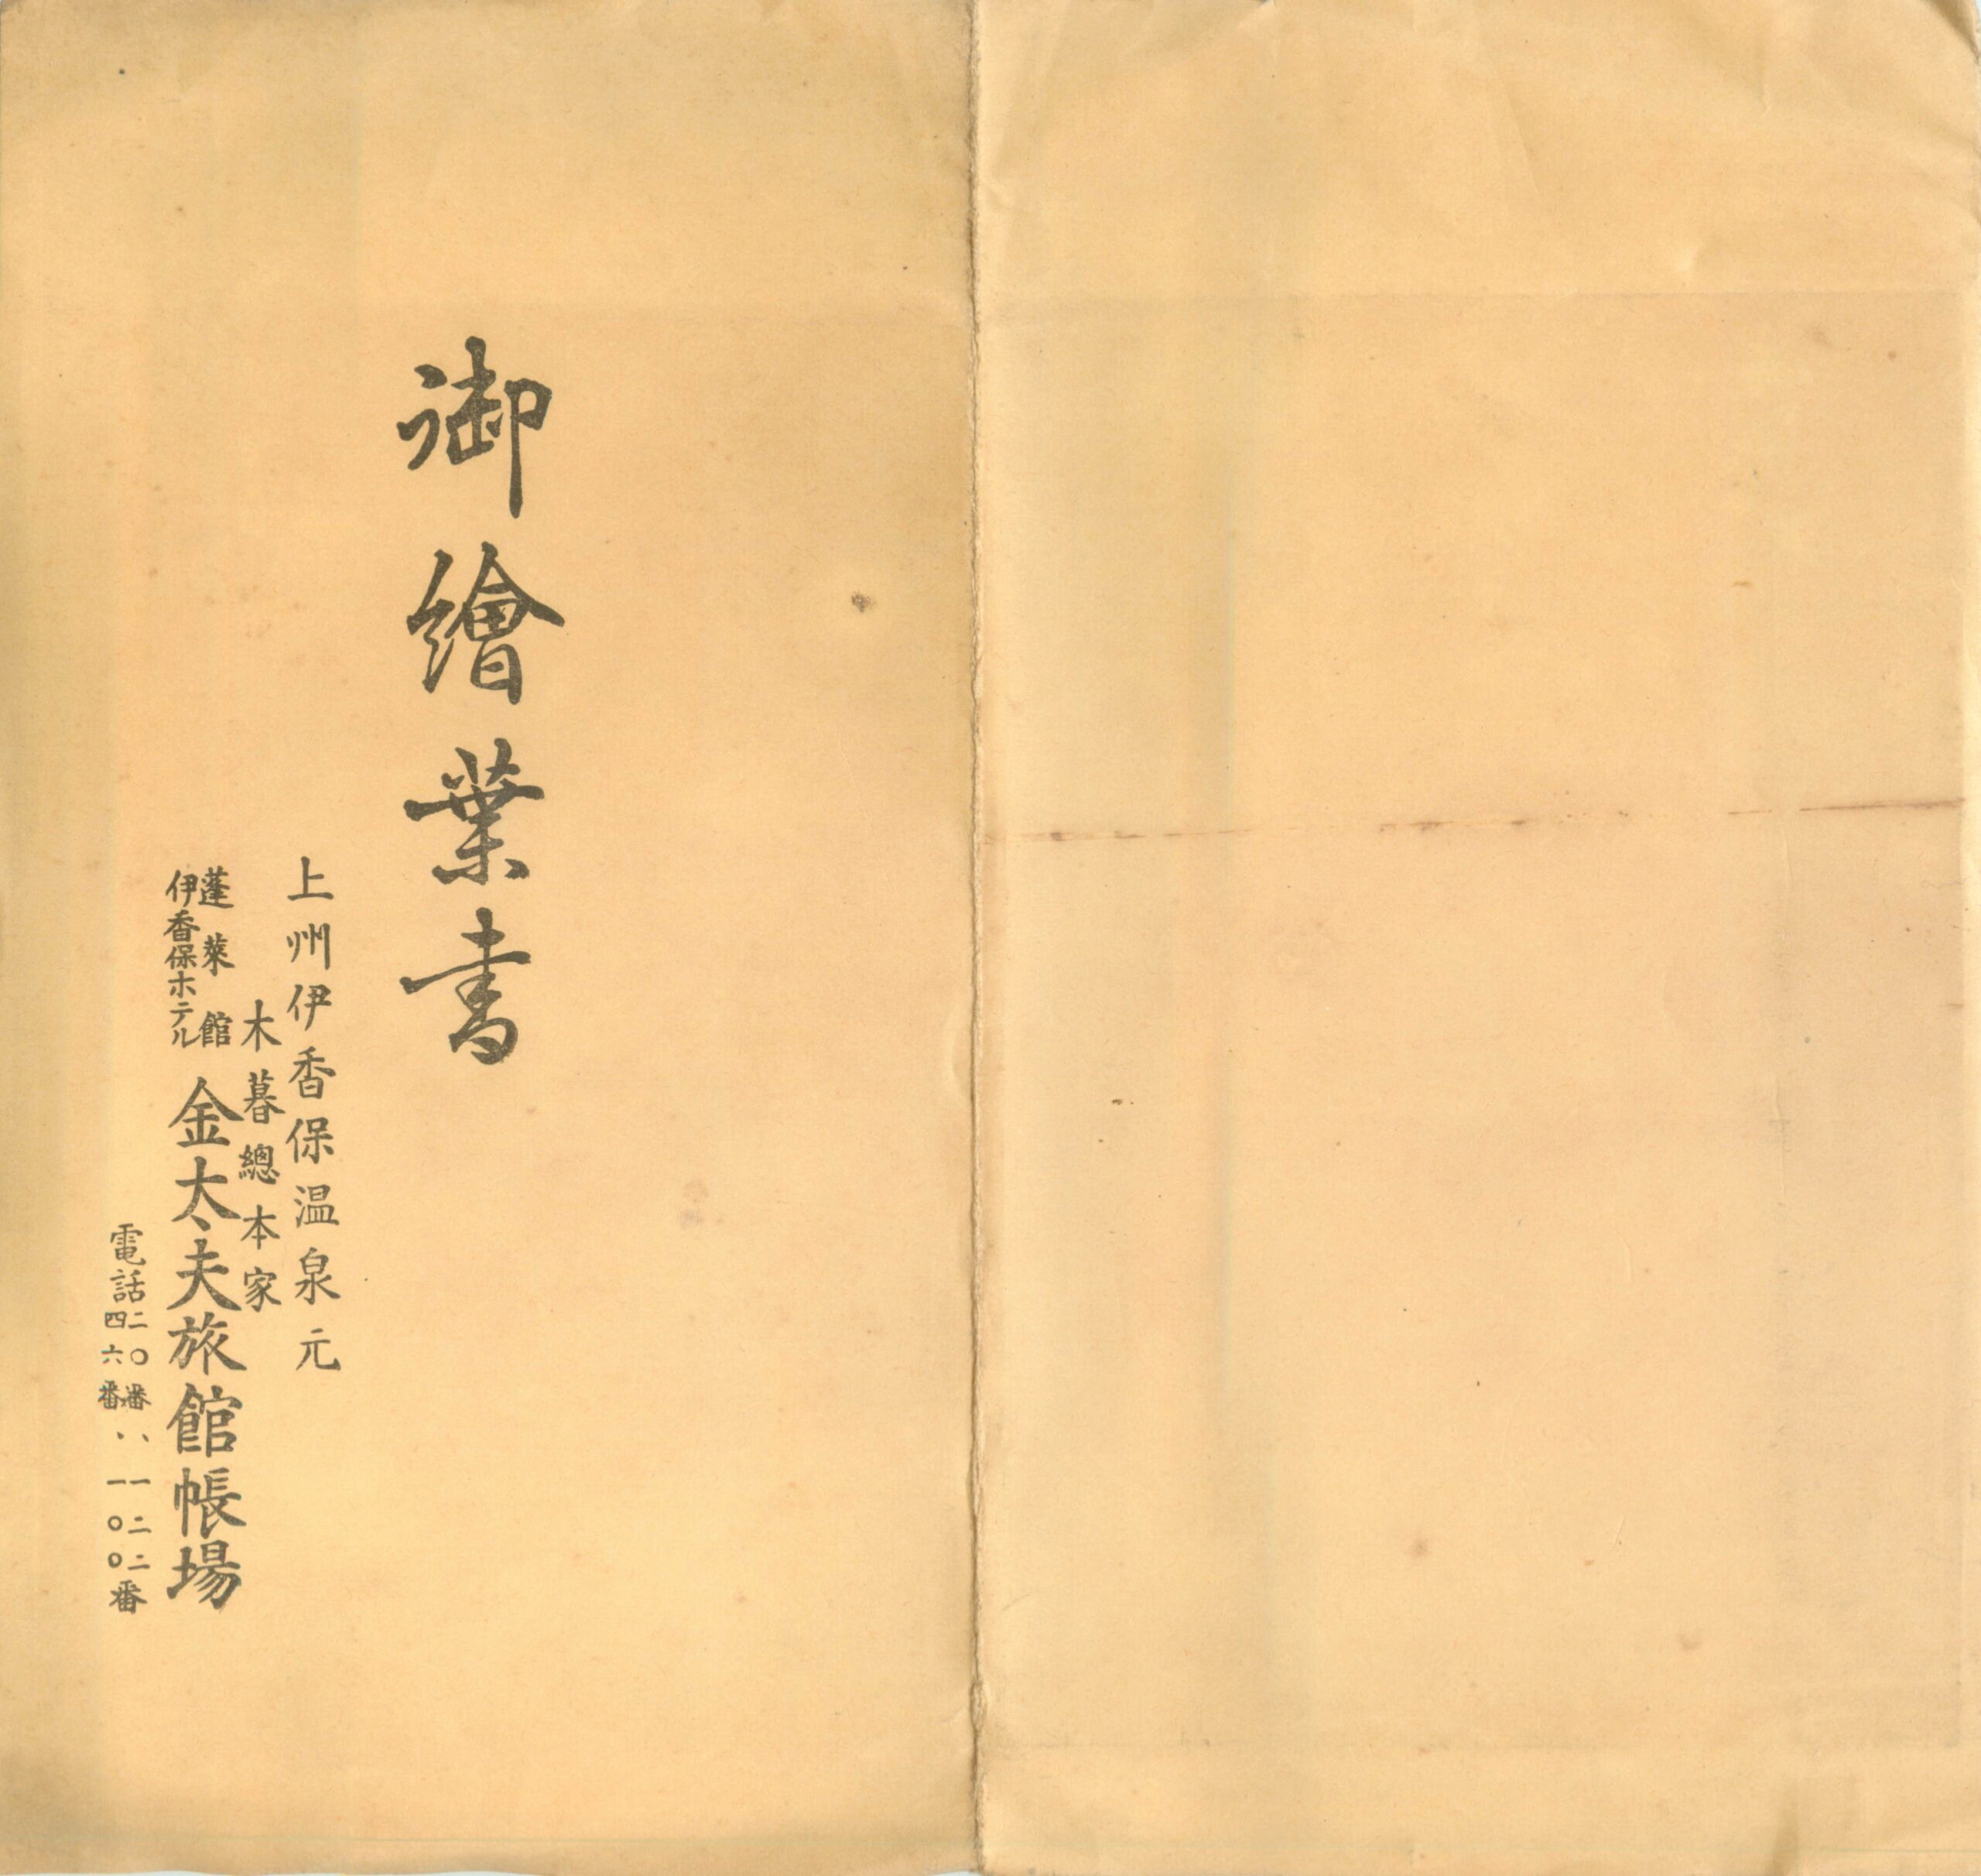 御繪葉書
上州伊香保温泉元
木暮總本家
蓬萊館
伊香保ホテル
金太夫旅館帳場
電話
二〇番、一二二番
四六番、一〇〇番